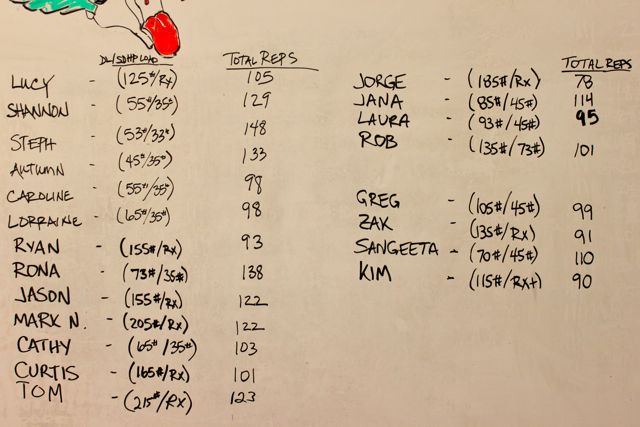 DL/SDHP LOAD TOTAL REPS
LUCY - (125#/Rx) 105
SHANNON - (55#/35#) 129
STEPH - (53#/33#) 148
AUTUMN - (45#/35#) 133
CAROLINE - (55#/35#) 98
LORRAINE - (65#/35#) 98
RYAN - (155#/Rx) 93
RONA - (73#/35#) 138
JASON - (155#/Rx) 122
MARK N. - (205#/Rx) 122
CATHY - (65#/35#) 103
CURTIS - (165#/Rx) 101
TOM - (215#/Rx) 123
TOTAL REPS
JORGE - (185#/Rx) 78
JANA - (85#/45#) 114
LAURA - (93#/45#) 95
ROB - (135#/73#) 101
GREG - (105#/45#) 99
ZAK - (135#/Rx) 91
SANGEETA - (70#/45#) 110
KIM - (115#/Rx+) 90